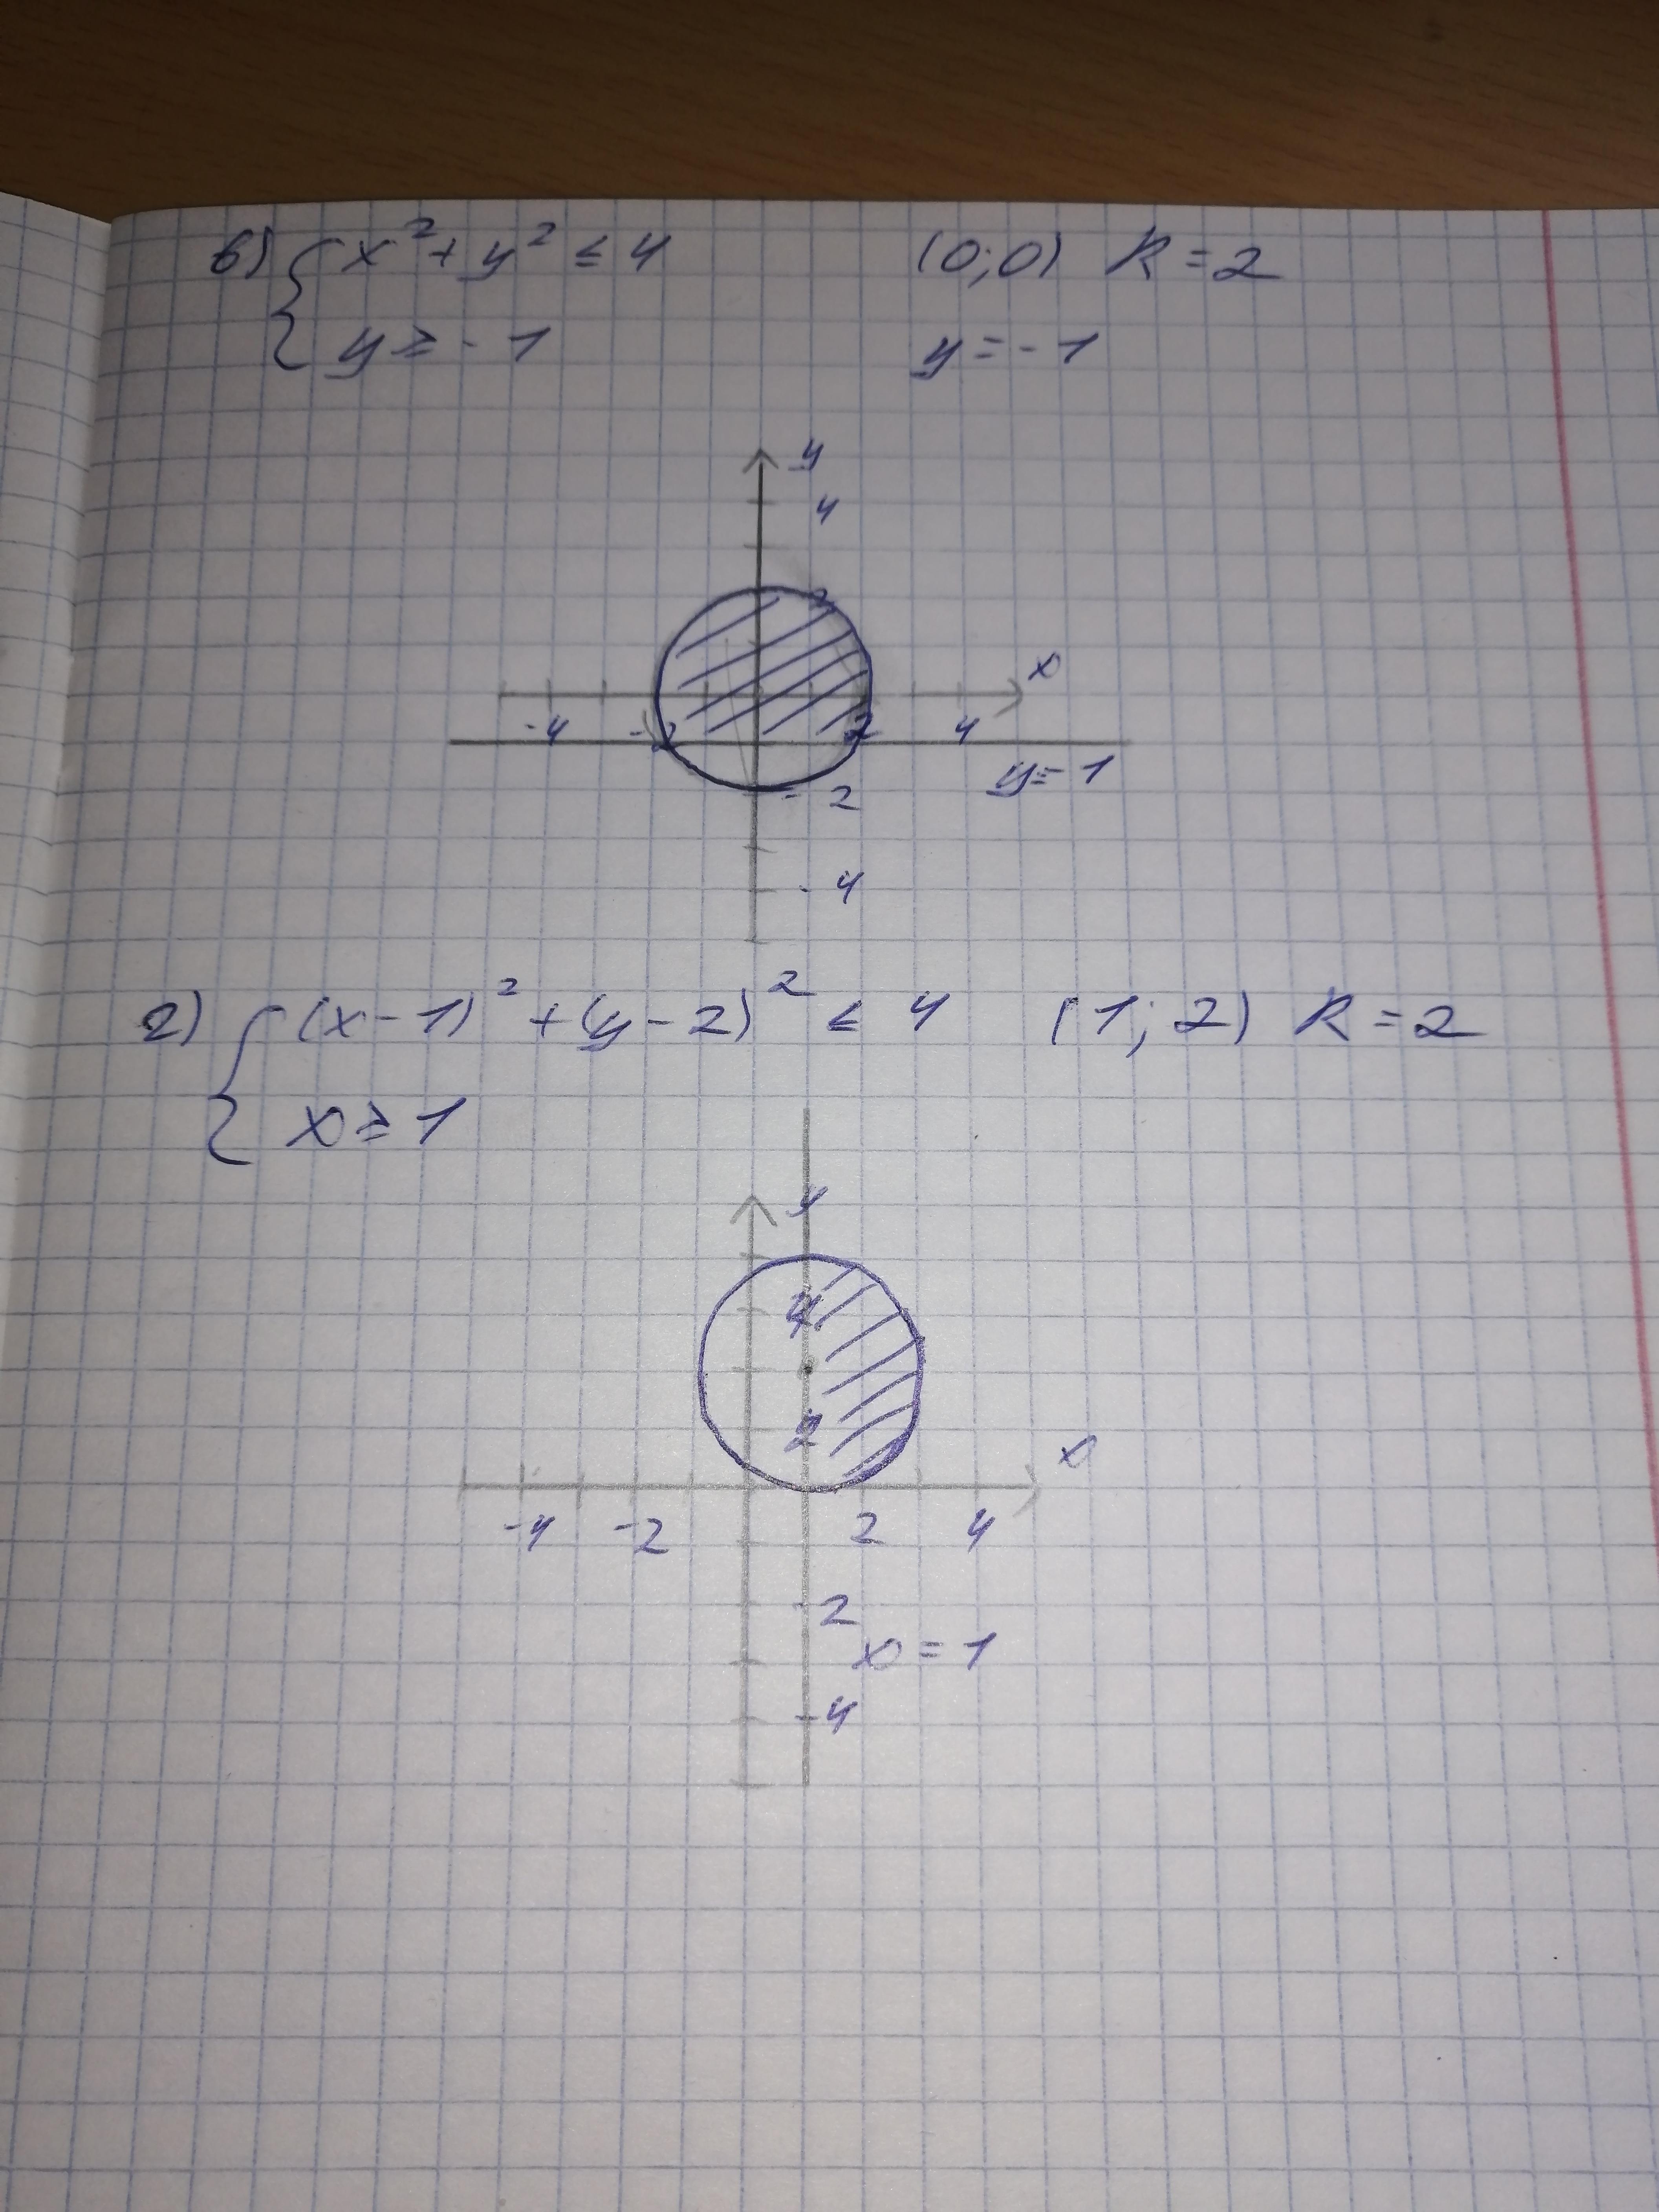 в) { x² + y² ≤ 4 (0;0) R = 2
y ≥ -1 y = -1
y
4
2
x
-4 -2 2 4
y = -1
-2
-4
г) { (x-1)² + (y-2)² ≤ 4 (1; 2) R = 2
x ≥ 1
y
4
2
x
-4 -2 2 4
-2
x = 1
-4